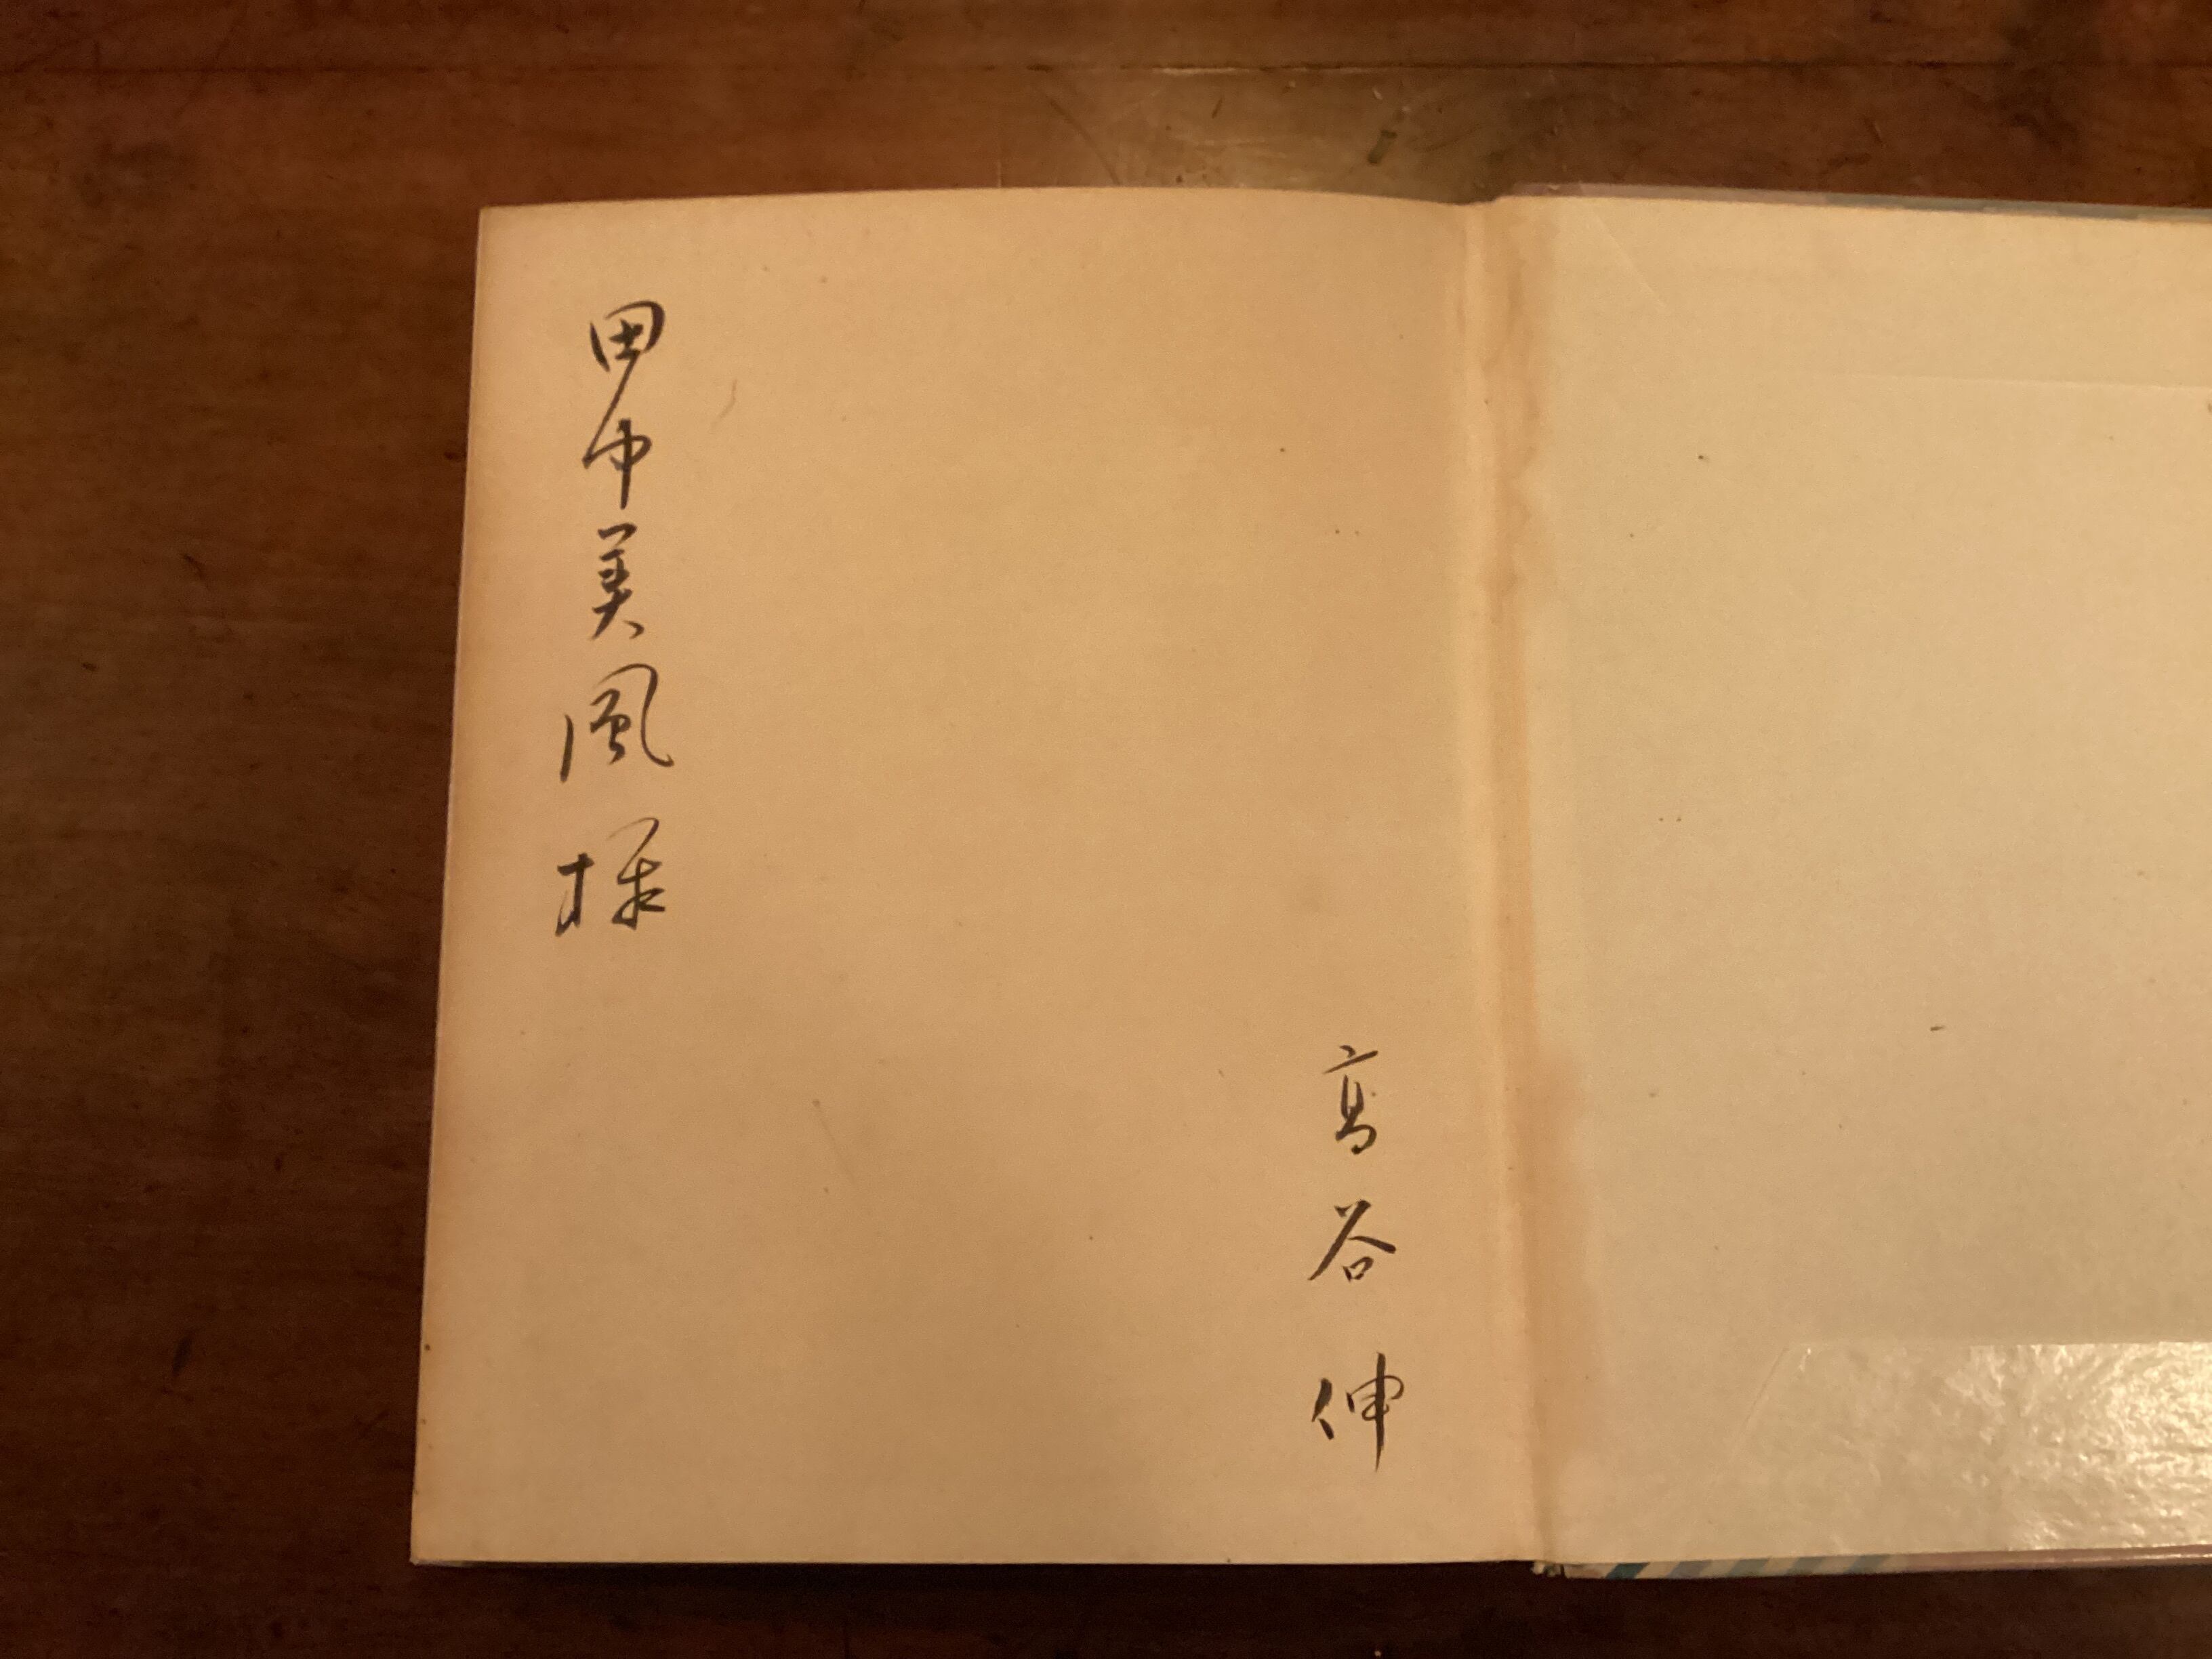 高谷伸
田中美風様